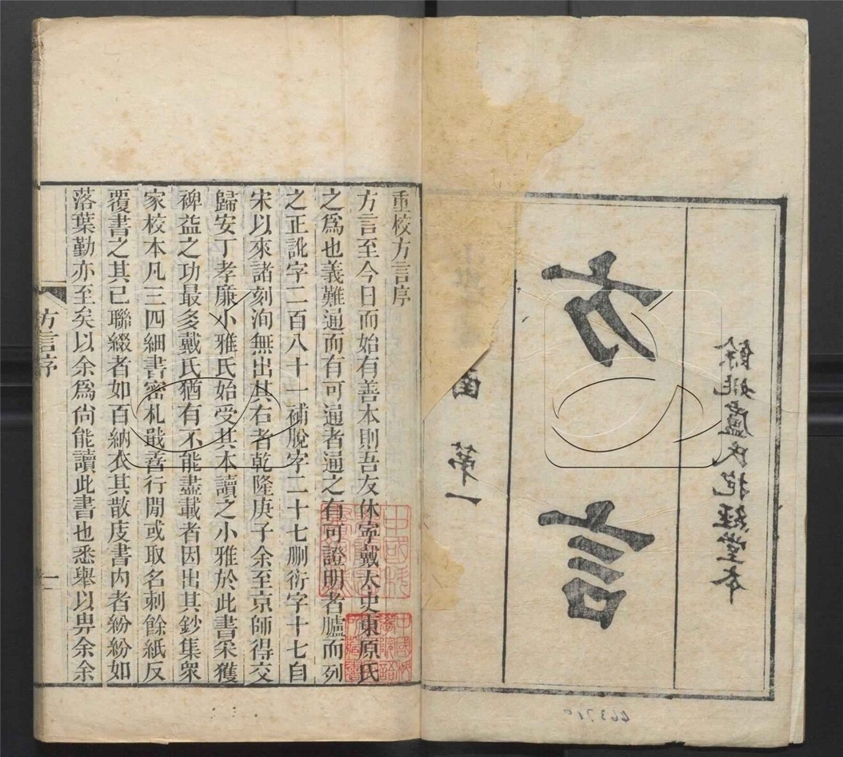 餘姚盧氏抱經堂本
方言
第一
重校方言序
方言至今日而始有善本則吾友休寧戴太史東原氏
之爲也義難通而有可通者通之有可證明者臚而列
之正訛字二百八十一補脫字二十七刪衍字十七自
宋以來諸刻洵無出其右者乾隆庚子余至京師得交
歸安丁孝廉小雅氏始受其本讀之小雅於此書采獲
裨益之功最多戴氏猶有不能盡載者因出其鈔集衆
家校本凡三四細書密札戢孴行閒或取名刺餘紙反
覆書之其已聯綴者如百納衣其散庋書內者紛紛如
落葉勤亦至矣以余爲尙能讀此書也悉舉以畀余余
方言序
一